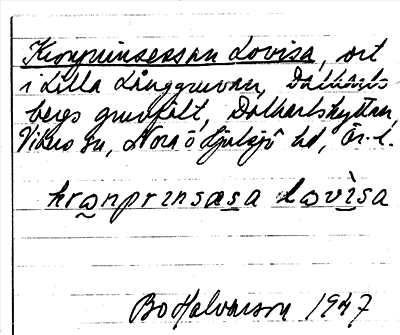 Kronprinsessan Lovisa, ort
i Lilla Långgruvan, Dalkarls
bergs gruvfält, Dalkarlshyttan,
Vikers sn, Nora o Hjulsjö bd, Ör. l.
krɷnprinsäsa lɷvìsa
Bo Halvarson 1947